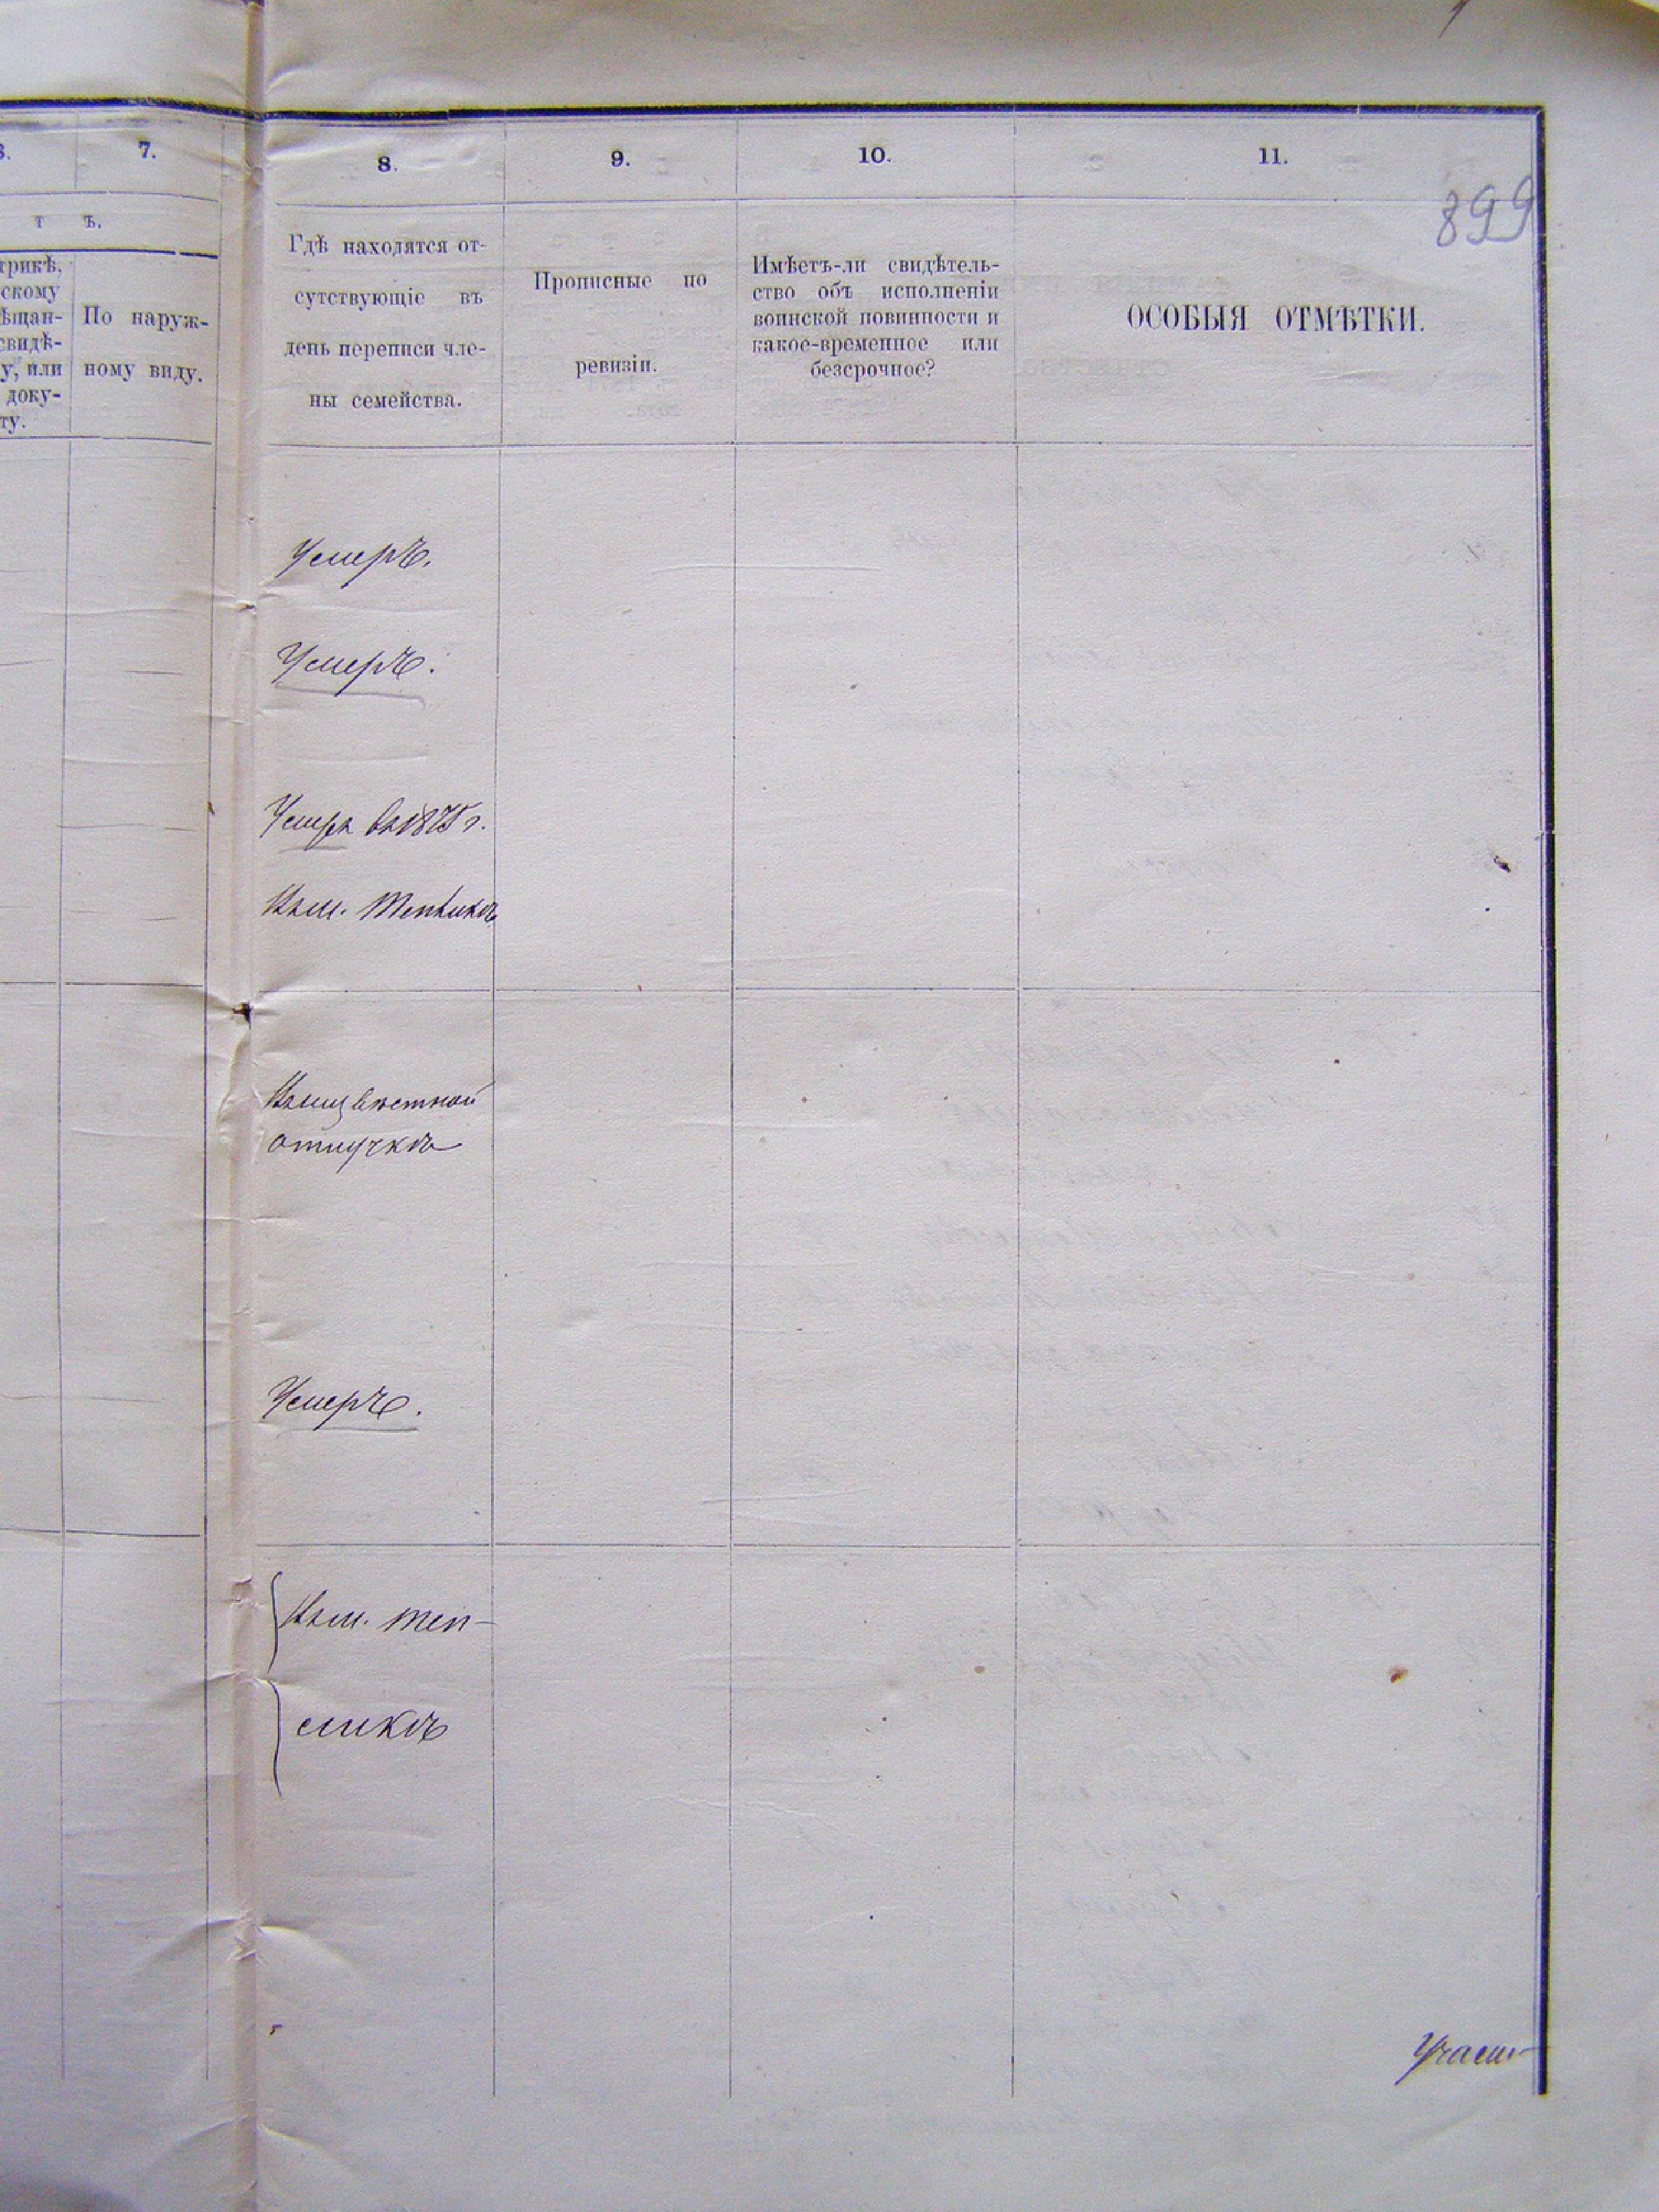 6.
7.
8.
9.
10.
11.
899
т ѣ.
трикѣ,
скому
ѣщан-
свидѣ-
у, или
доку-
ту.
По наруж-
ному виду.
Гдѣ находятся от-
сутствующіе въ
день переписи чле-
ны семейства.
Прописные по
ревизіи.
Имѣетъ-ли свидѣтель-
ство объ исполненіи
воинской повинности и
какое-временное или
безсрочное?
ОСОБЫЯ ОТМѢТКИ.
Умеръ.
Умеръ.
Умеръ въ 1875 г.
Въ м.
отлучкѣ
Умеръ.
Въ м. Теп-
ликѣ